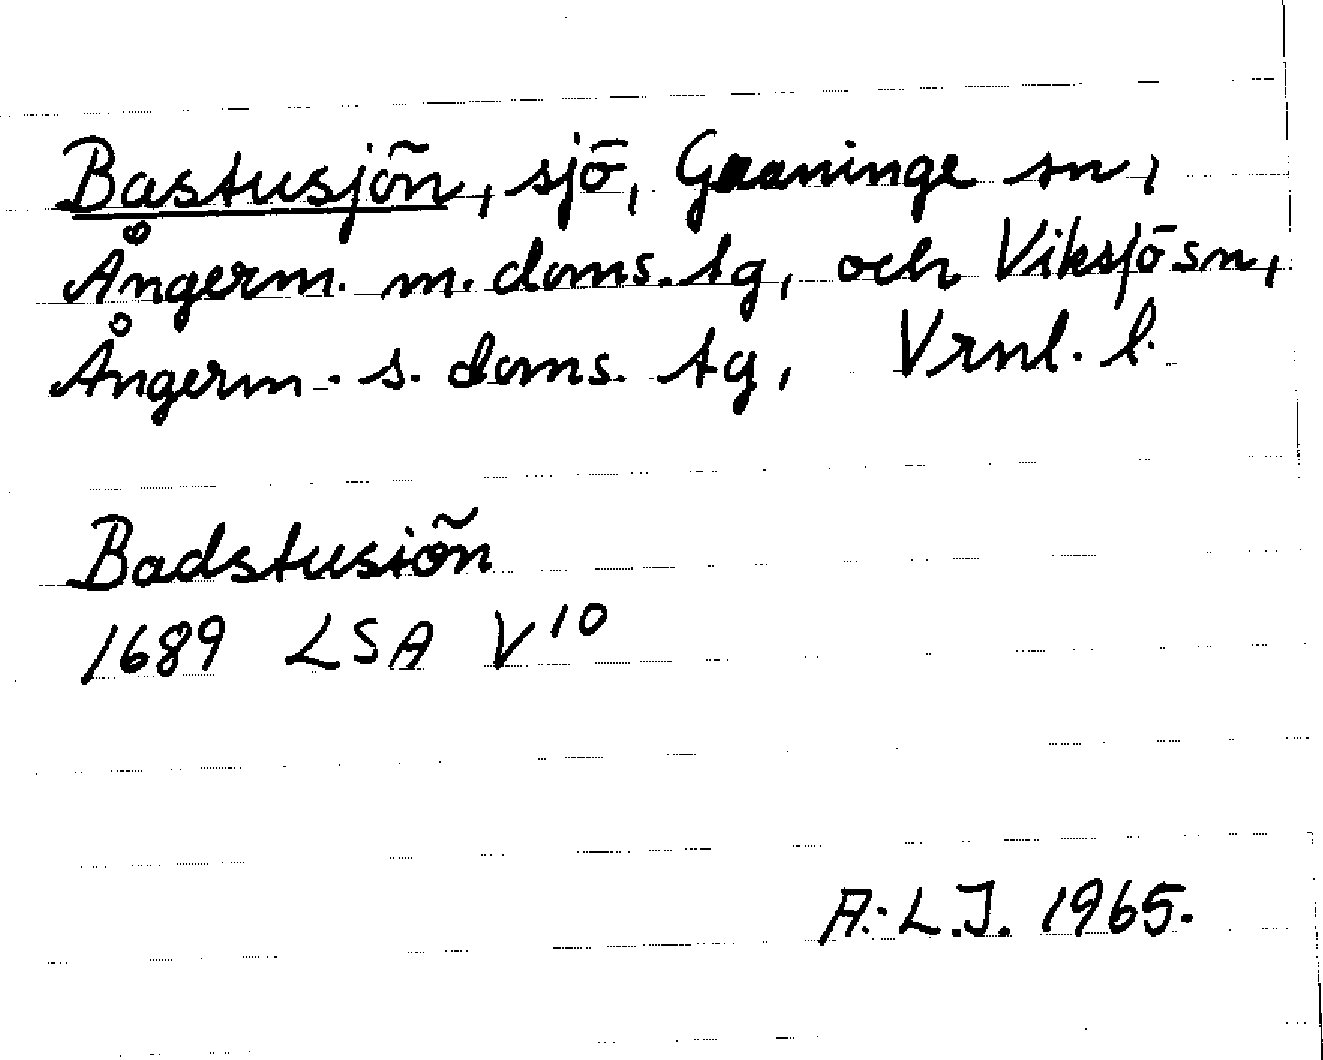 Bastusjön, sjö, Graninge sn,
Ångerm. m. doms. tg, och Viksjö sn,
Ångerm. s. doms. tg, Vrnl. l.
Badstusiön
1689 LSA V10
A.L.J. 1965.